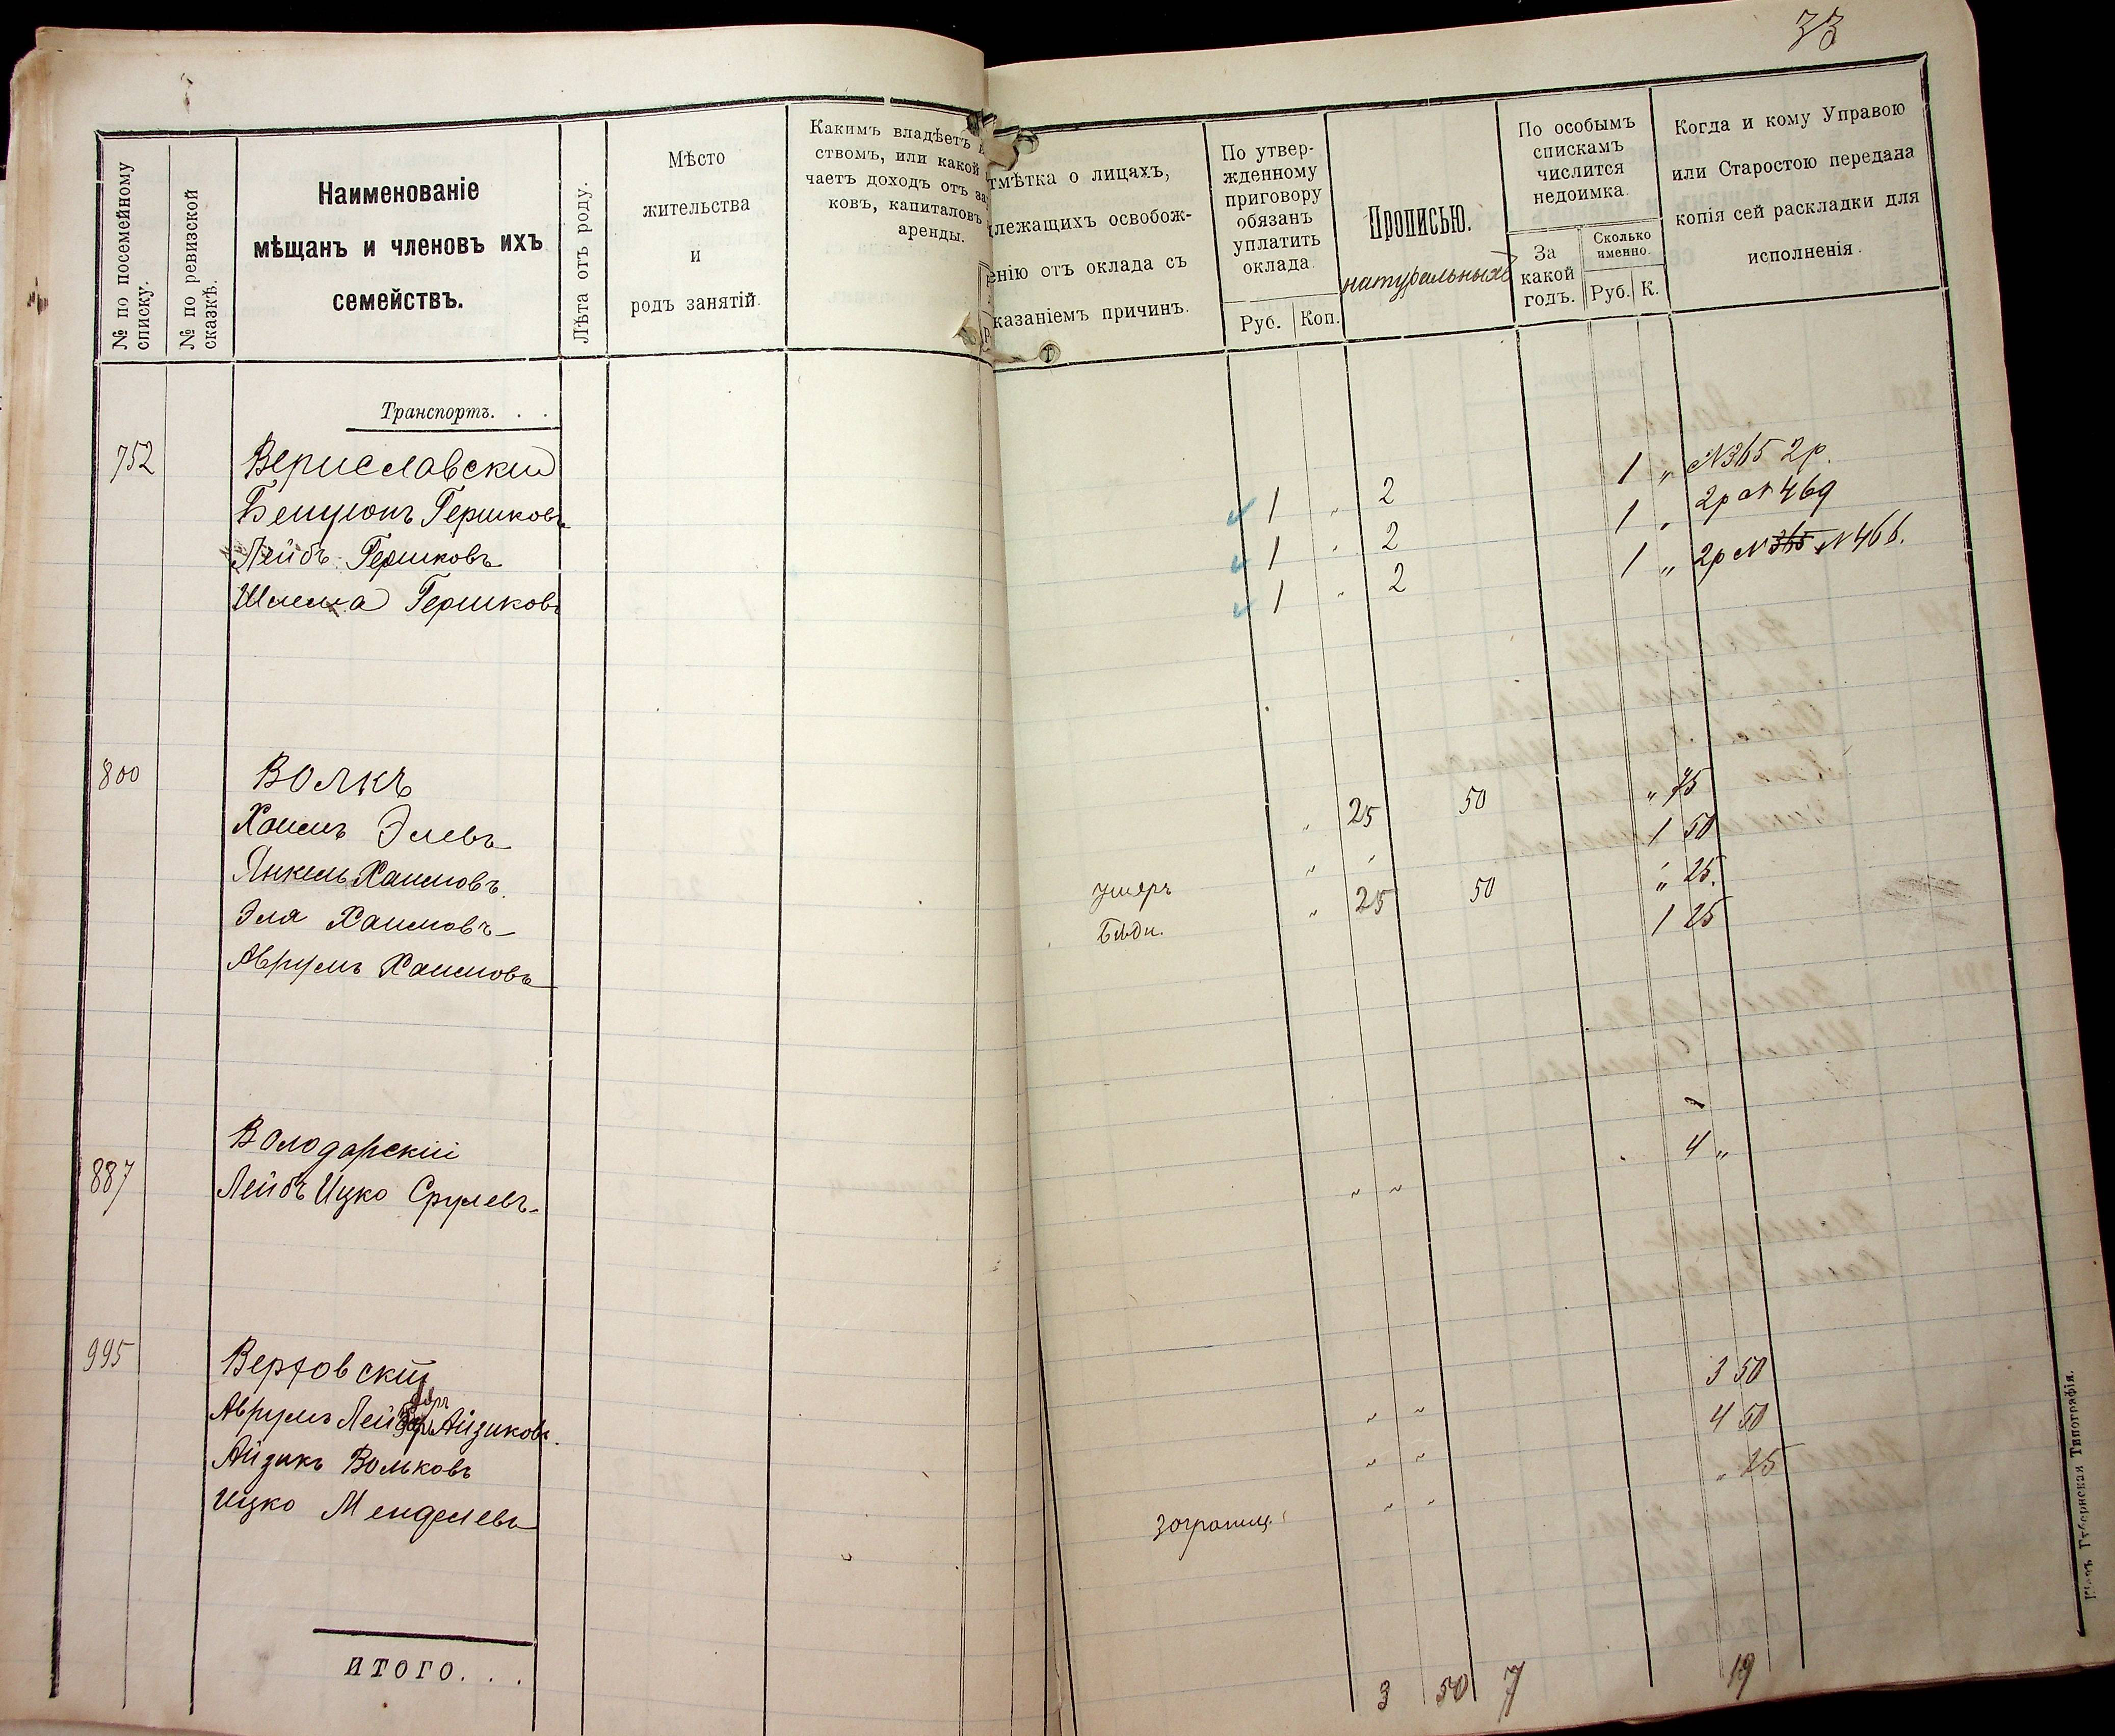 33
№ по посемейному списку.
№ по ревизской сказкѣ.
Наименованіе
мѣщанъ и членовъ ихъ
семействъ.
Лѣта отъ роду.
Мѣсто
жительства
и
родъ занятій.
Какимъ владѣетъ
ствомъ, или какой
чаетъ доходъ отъ за
ковъ, капиталовъ
аренды.
тмѣтка о лицахъ,
лежащихъ освобож-
енію отъ оклада съ
казаніемъ причинъ.
По утвер-
жденному
приговору
обязанъ
уплатить
оклада.
Руб. Коп.
Прописью.
натуральныхъ
По особымъ
спискамъ
числится
недоимка.
За
какой
годъ.
Сколько
именно.
Руб. К.
Когда и кому Управою
или Старостою передана
копія сей раскладки для
исполненія.
Транспортъ. . .
752 Вериславскій
Гершковъ 1 " 2 1 " №365 2р.
Лейбъ Гершковъ 1 " 2 1 " 2р № 469
Шлема Гершковъ 1 " 2 1 " 2р №365 №466.
800 Волкъ
Хаимъ Элевъ " 25 50 " 75
Янкель Хаимовъ умеръ " " 1 50
Эля Хаимовъ Бѣдн. " 25 50 " 25.
Аврумъ Хаимовъ 1 25
887 Володарскій
Лейбъ Ицко Срулевъ " " 4 "
995 Вертовскій
Аврумъ Айзиковъ " " 3 50
Айзикъ Вольковъ " " 4 50
Ицко Менделевъ заграниц. " " " 25
ИТОГО. . . 3 50 7 19
Кіевъ Губернская Типографія.